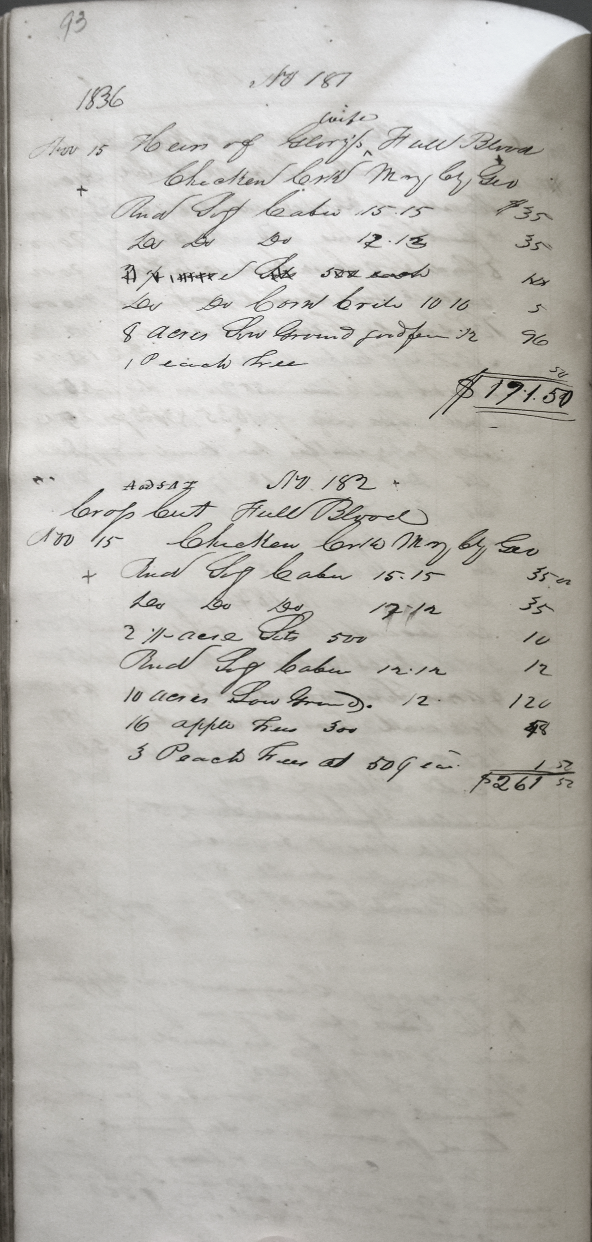 93
No 181
1836
wife
Nov 15 Heirs of Glory's ^ Full Blood
+ Chicken Crk Mry Cty Geo
Rnd Log Cabin 15.15 $35
Do Do Do 12.12 35
500 each
Do Do Corn Crib 10 10 5
8 acres Low Ground good fen 12 96
1 Peach Tree 50
$171.50
No 182
Crop Cut Full Blood
Nov 15 Chicken Crk Mry Cty Geo
+ Rnd Log Cabin 15.15 35 00
Do Do Do 12.12 35
2 1/2 acre Lots 500 10
Rnd Log Cabin 12.12 12
10 acres Low Grund. 12. 120
16 apple Trees 300 48
3 Peach Trees at 50 1 50
$261 50